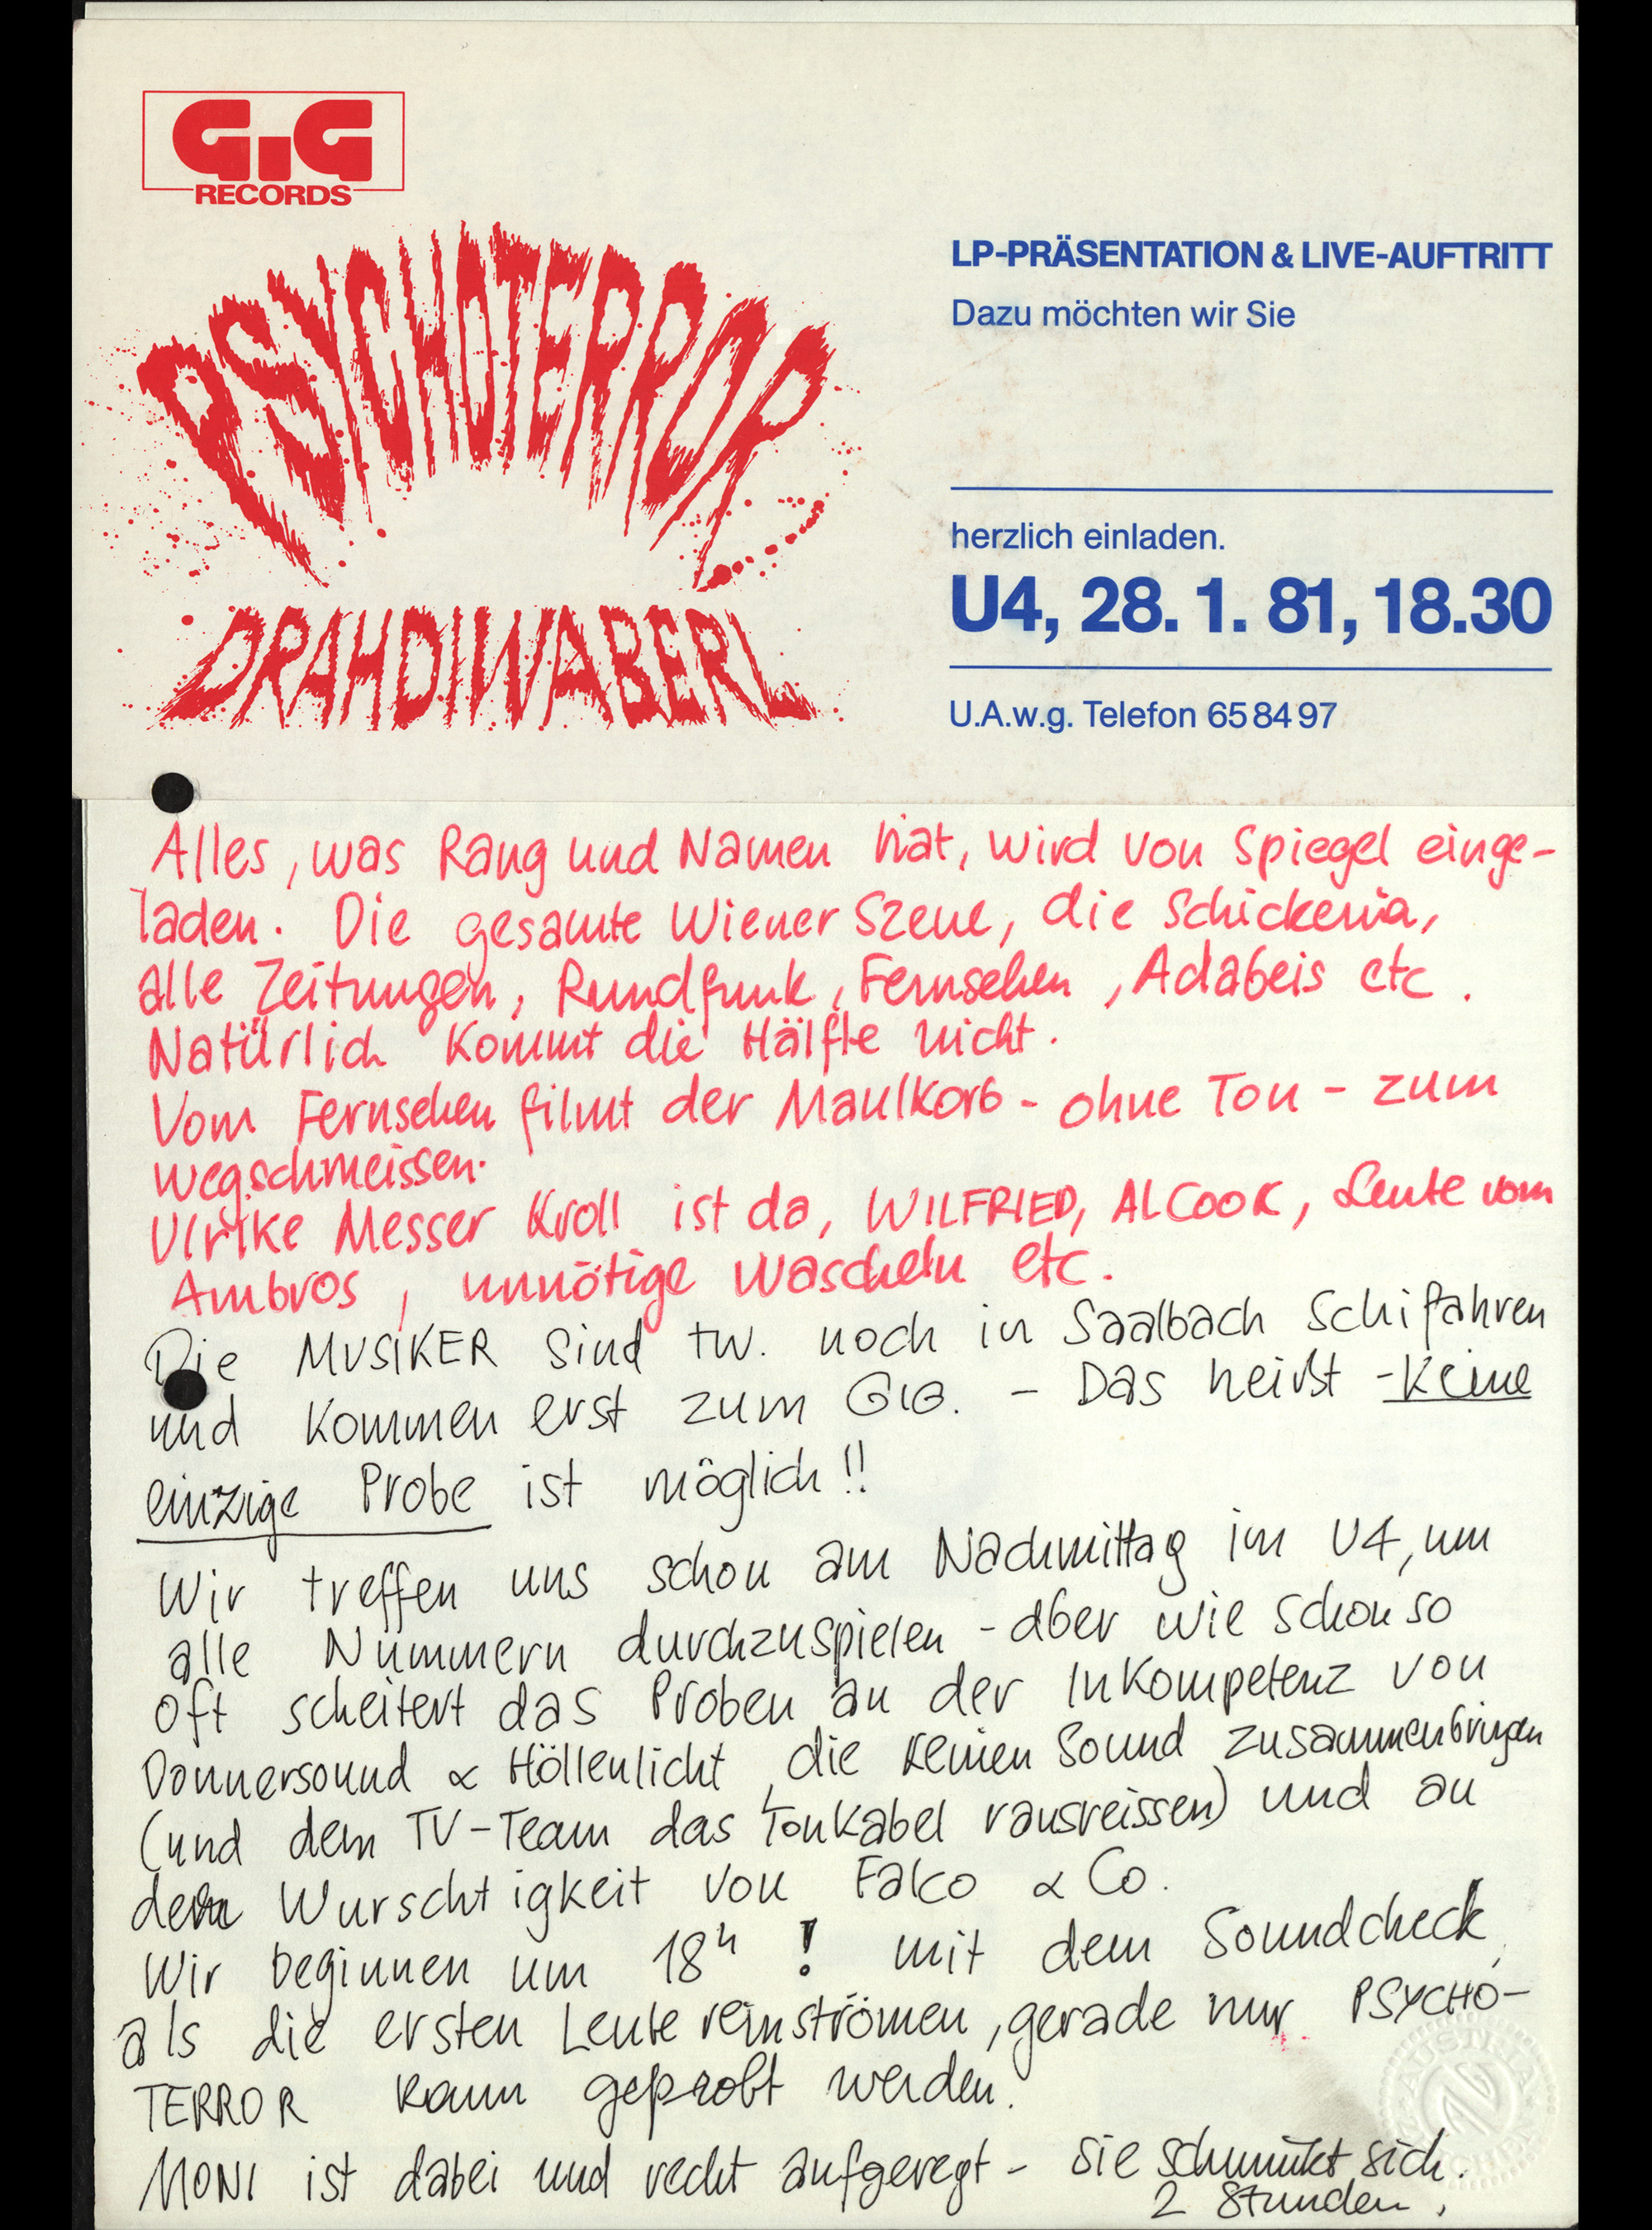 GiG
RECORDS
PSYCHOTERROR
DRAHDIWABERL
LP-PRÄSENTATION & LIVE-AUFTRITT
Dazu möchten wir Sie
herzlich einladen.
U4, 28. 1. 81, 18.30
U.A.w.g. Telefon 65 84 97
Alles, was Rang und Namen hat, wird von Spiegel einge-
laden. Die gesamte Wiener Szene, die Schickeria,
alle Zeitungen, Rundfunk, Fernsehen, Adabeis etc.
Natürlich kommt die Hälfte nicht.
Vom Fernsehen filmt der Maulkorb - ohne Ton - zum
wegschmeissen.
Ulrike Messer Kroll ist da, WILFRIED, AL COOK, Leute vom
Ambros, unnötige Wascheln etc.
Die MUSIKER sind tw. noch in Saalbach Schifahren
und kommen erst zum GIG. - Das heißt - keine
einzige Probe ist möglich!!
Wir treffen uns schon am Nachmittag im U4, um
alle Nummern durchzuspielen - aber wie schon so
oft scheitert das Proben an der Inkompetenz von
Donnersound & Höllenlicht, die keinen Sound zusammenbringen
(und dem TV-Team das Tonkabel rausreissen) und an
der Wurschtigkeit von Falco & Co.
Wir beginnen um 18h! mit dem Soundcheck,
als die ersten Leute reinströmen, gerade nur PSYCHO-
TERROR kann geprobt werden.
MONI ist dabei und recht aufgeregt - sie schminkt sich
2 Stunden.
AUSTRIA